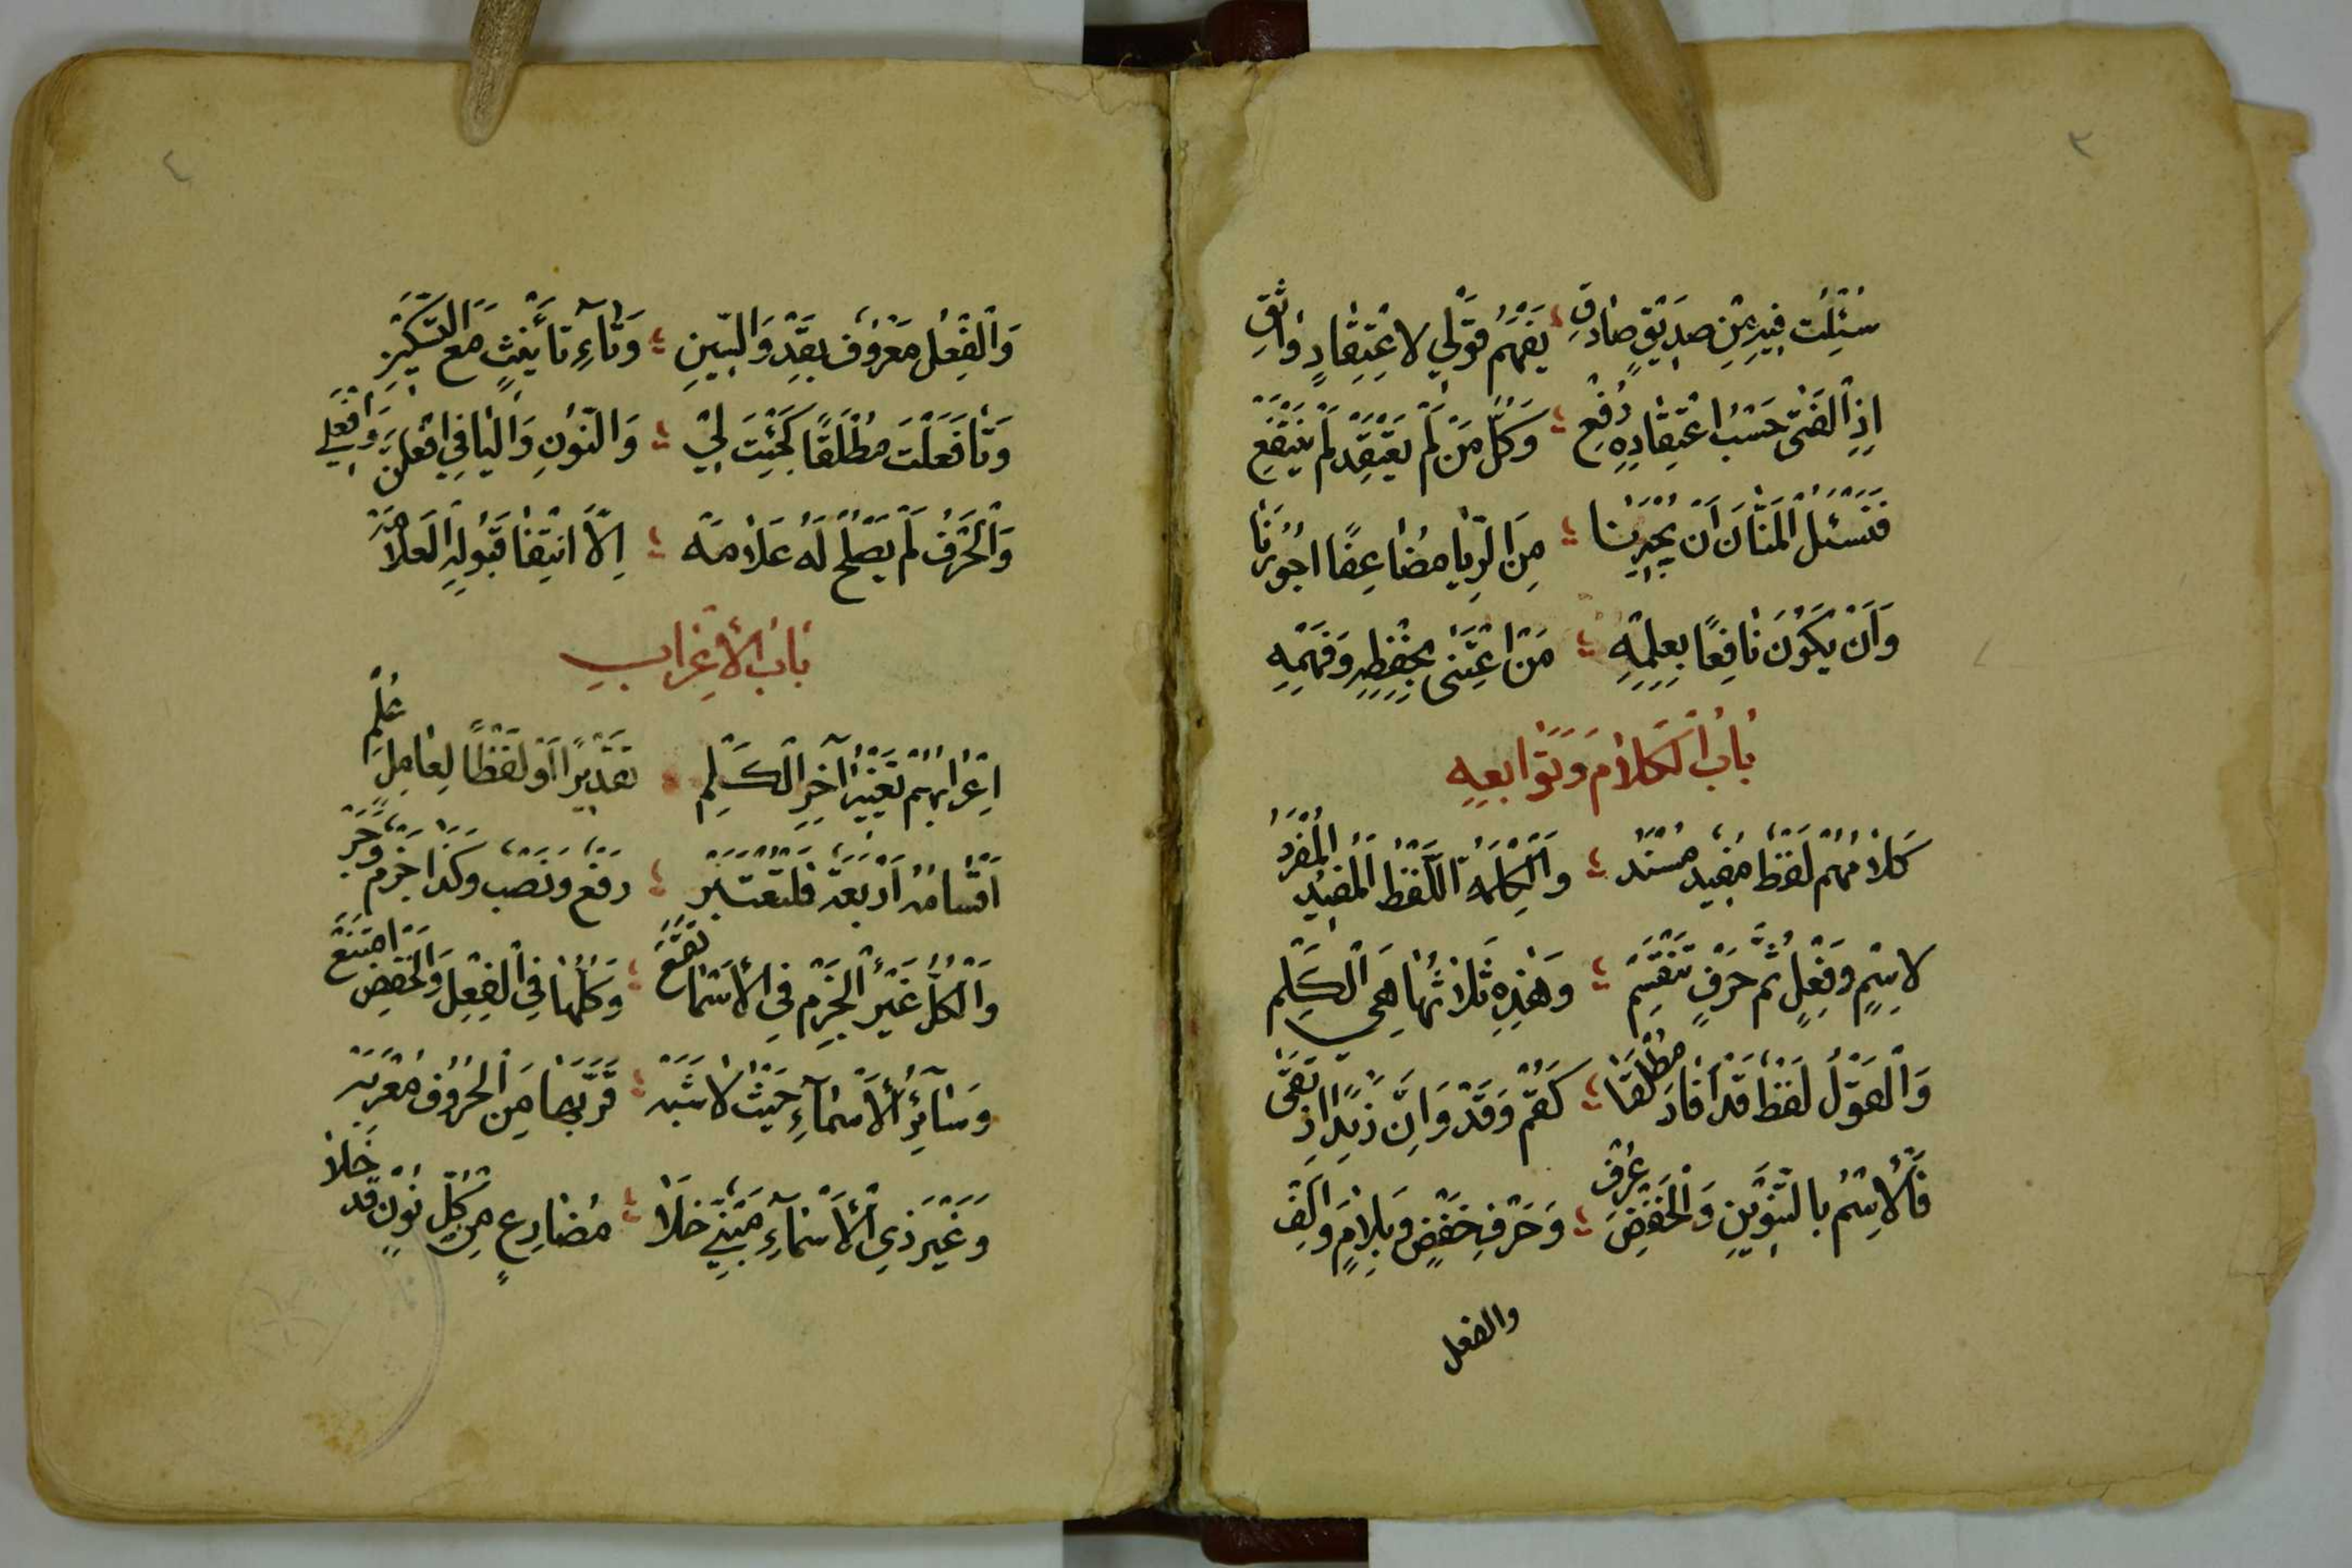 ٣
سُئِلْتُ فِيهِ مِنْ صَدِيقٍ صَادِقِ ؛ يَفْهَمُ قَوْلِي لِاعْتِقَادٍ وَاثِقِ
اِذِ الْفَتَى حَسْبَ اعْتِقَادِهِ رُفِعْ ؛ وَكُلُّ مَنْ لَمْ يَعْتَقِدْ لَمْ يَنْتَفِعْ
فَنَسْئَلُ الْمَنَّانَ اَنْ يُجِيرَنَا ؛ مِنَ الرِّيَا مُضَاعِفًا اُجُورَنَا
وَاَنْ يَكُونَ نَافِعًا بِعِلْمِهِ ؛ مَنِ اعْتَنَى بِحِفْظِهِ وَفَهْمِهِ
بَابُ الْكَلَامِ وَتَوَابِعِهِ
كَلَامُهُمْ لَفْظٌ مُفِيدٌ مُسْنَدُ ؛ وَالْكِلْمَةُ اللَّفْظُ الْمُفِيدُ الْمُفْرَدُ
لِاسْمٍ وَفِعْلٍ ثُمَّ حَرْفٍ تَنْقَسِمْ ؛ وَهٰذِهِ ثَلَاثُهَا هِيَ الْكَلِمْ
وَالْقَوْلُ لَفْظٌ قَدْ اَفَادَ مُطْلَقَا ؛ كَقُمْ وَقَدْ وَاِنَّ زَيْدًا اِرْتَقَى
فَالِاسْمُ بِالتَّنْوِينِ وَالْخَفْضِ عُرِفْ ؛ وَحَرْفِ خَفْضٍ وَبِلَامٍ وَاَلِفْ
والفعل
٤
وَالْفِعْلُ مَعْرُوفٌ بِقَدْ وَالسِّينِ ؛ وَتَاءِ تَأْنِيثٍ مَعَ التَّسْكِينِ
وَتَا فَعَلْتَ مُطْلَقًا كَجِئْتَ لِي ؛ وَالنُّونِ وَالْيَا فِي افْعَلَنَّ وَافْعَلِي
وَالْحَرْفُ لَمْ يَصْلُحْ لَهُ عَلَامَهْ ؛ اِلَّا انْتِفَا قَبُولِهِ الْعَلَامَهْ
بَابُ الْاِعْرَابِ
اِعْرَابُهُمْ تَغْيِيرُ آخِرِ الْكَلِمْ تَقْدِيرًا اَوْ لَفْظًا لِعَامِلٍ عُلِمْ
اَقْسَامُهُ اَرْبَعَةٌ فَلْتُعْتَبَرْ ؛ رَفْعٌ وَنَصْبٌ وَكَذَا جَزْمٌ وَجَرْ
وَالْكُلُّ غَيْرُ الْجَزْمِ فِي الْاَسْمَا تَقَعْ ؛ وَكُلُّهَا فِي الْفِعْلِ وَالْخَفْضُ امْتَنَعْ
وَسَائِرُ الْاَسْمَاءِ حَيْثُ لَا شَبَهْ ؛ قَرَّبَهَا مِنَ الْحُرُوفِ مُعْرَبَهْ
وَغَيْرُ ذِي الْاَسْمَاءِ مَبْنِيٌّ خَلَا ؛ مُضَارِعٍ مِنْ كُلِّ نُونٍ قَدْ خَلَا